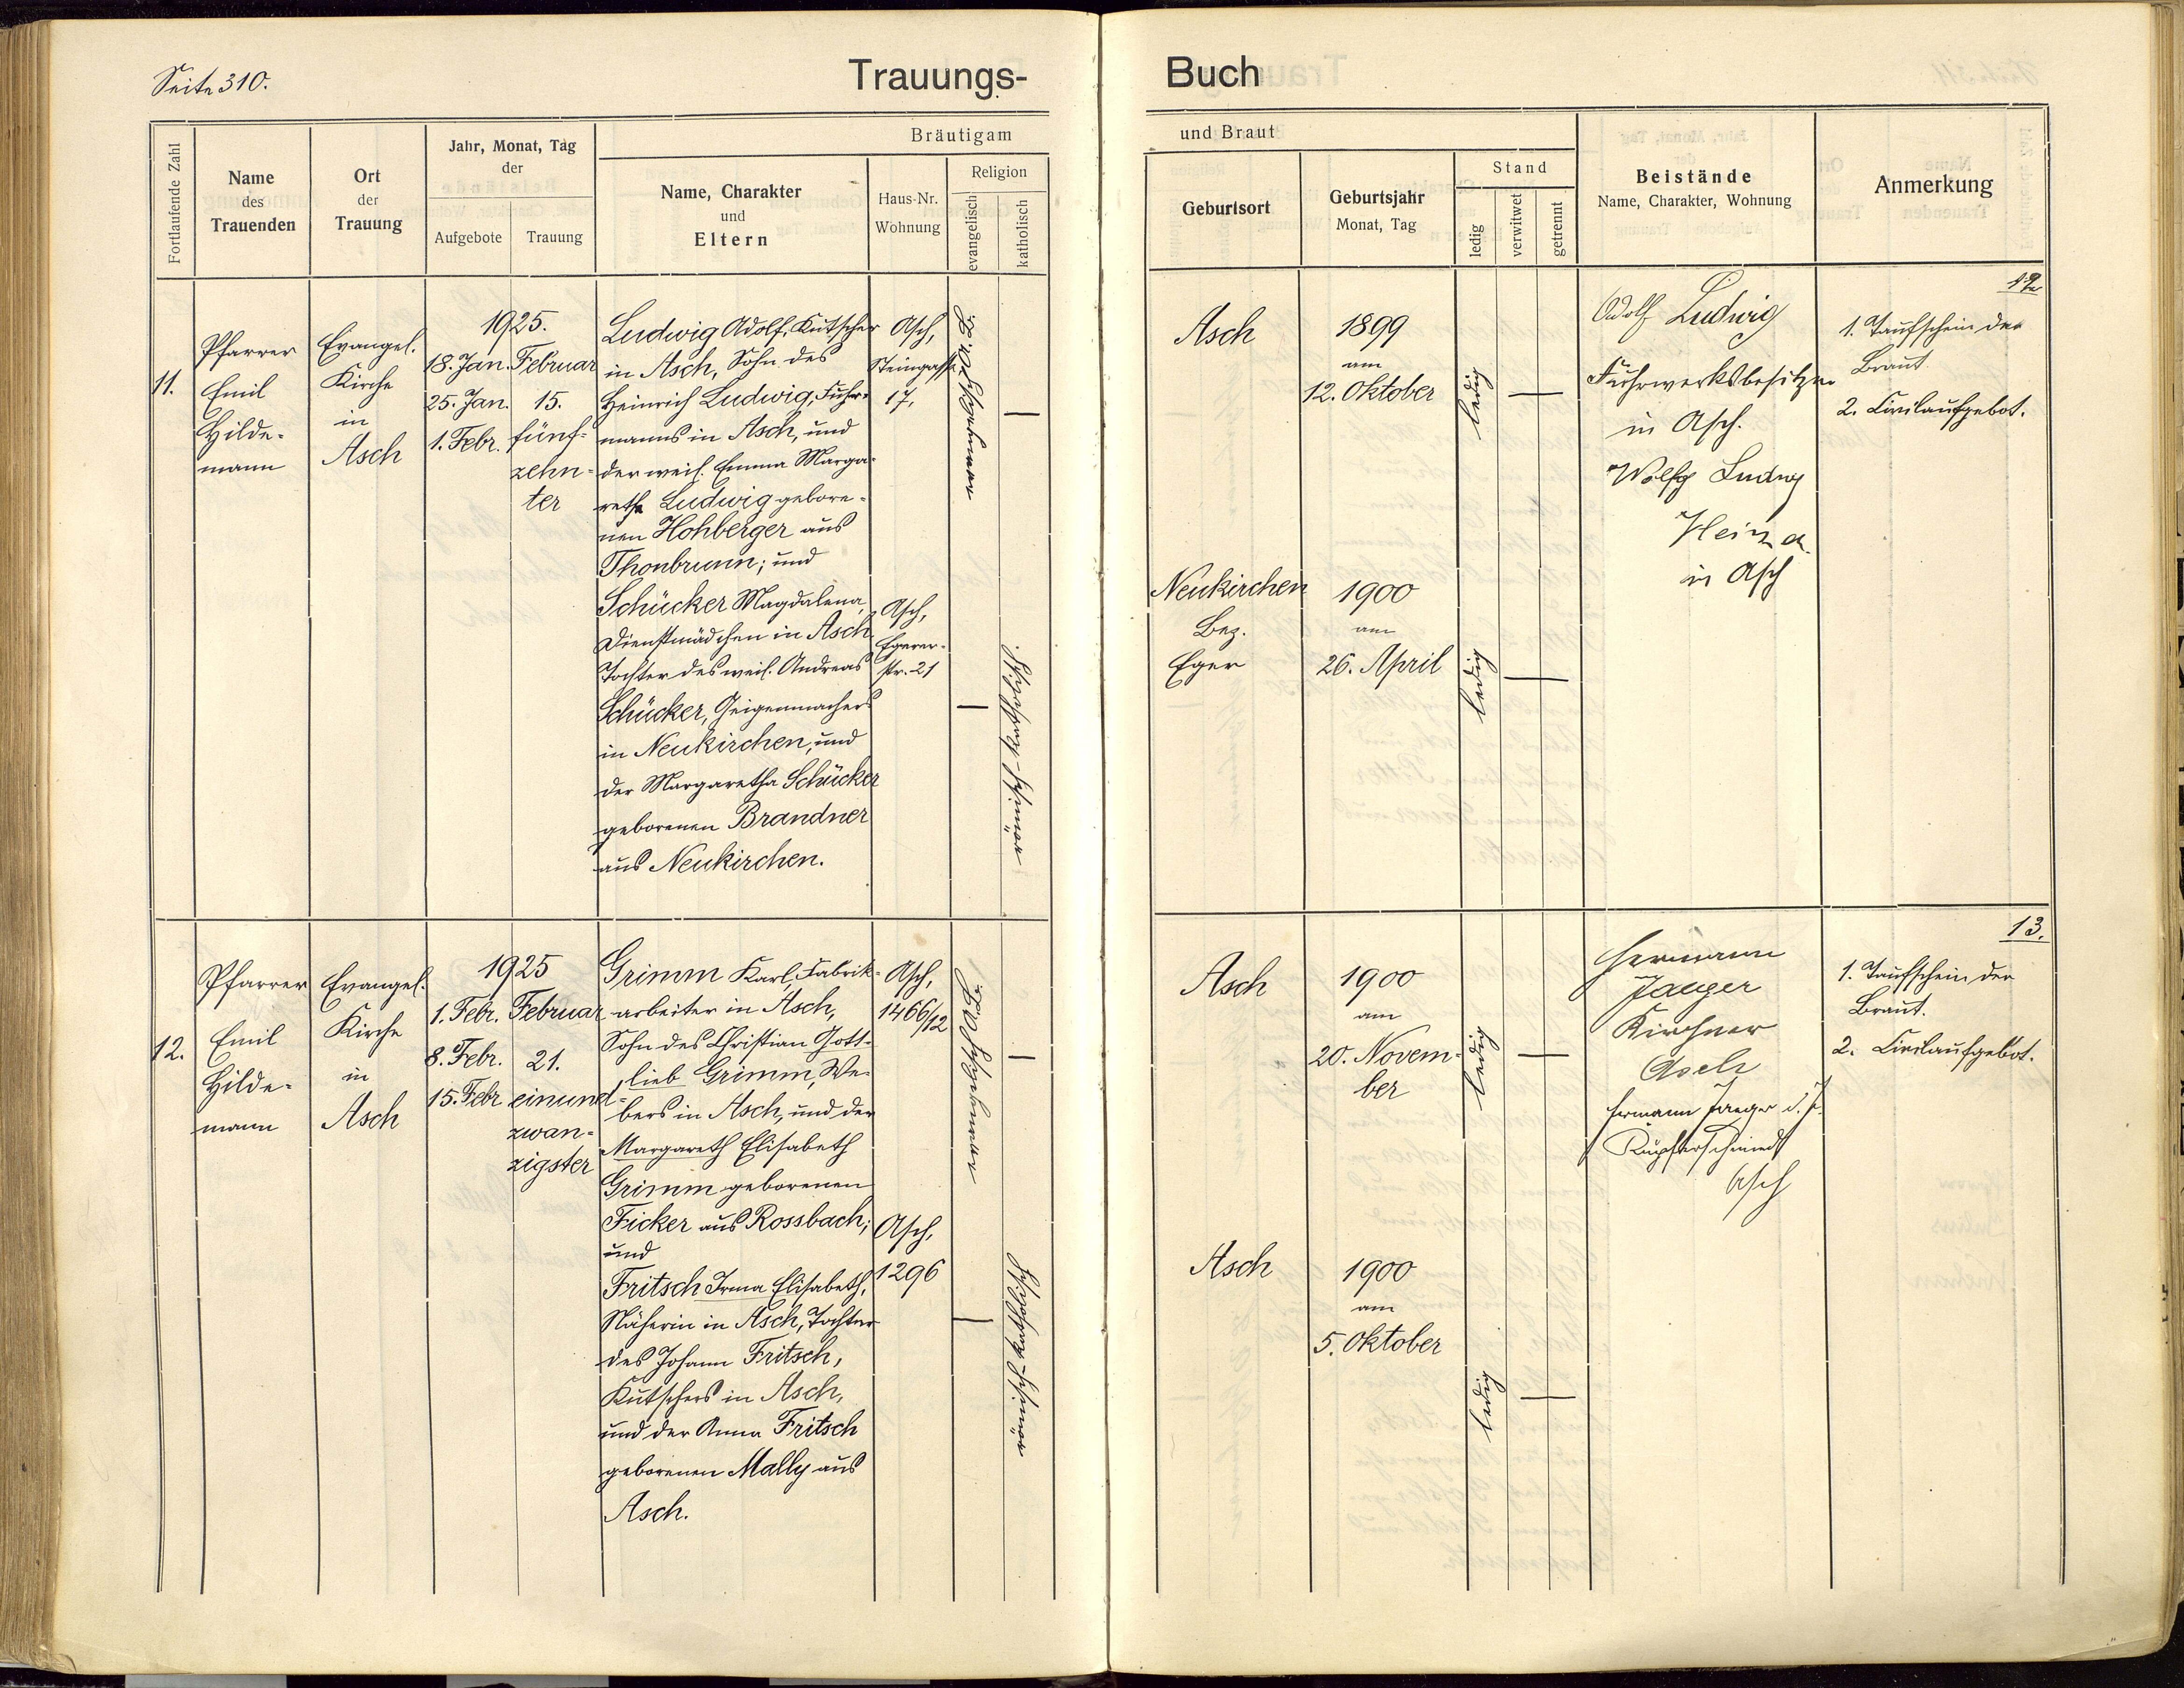 Seite 310.
Trauungs-
Buch
Fortlaufende Zahl
Name
des
Trauenden
Ort
der
Trauung
Jahr, Monat, Tag
der
Aufgebote
Trauung
Bräutigam
Name, Charakter
und
Eltern
Haus-Nr.
Wohnung
Religion
evangelisch
katholisch
und Braut
Geburtsort
Geburtsjahr
Monat, Tag
Stand
ledig
verwitwet
getrennt
Beistände
Name, Charakter, Wohnung
Anmerkung
11.
Pfarrer
Emil
Hilde-
mann
Evangel.
Kirche
in
Asch
1925.
18. Jan.
25. Jan.
1. Febr.
Februar
15.
fünf-
zehn-
ter
Ludwig Adolf, Kutscher
in Asch, Sohn des
Heinrich Ludwig, Fuhr-
manns in Asch, und
der weil. Emma Marga-
retha Ludwig gebore-
nen Hohberger aus
Thonbrunn; und
Schücker Magdalena,
Dienstmädchen in Asch,
Tochter des weil. Andreas
Schücker, Geigenmachers
in Neukirchen, und
der Margaretha Schücker
geborenen Brandner
aus Neukirchen.
Asch,
Steingasse
17,
Asch,
Egerer-
str. 21
römisch-katholisch.
Asch
1899
am
12. Oktober
ledig
Neukirchen
Bez.
Eger
1900
am
26. April
ledig
Adolf Ludwig
Fuhrwerksbesitzer
in Asch.
Wolfg Ludwig
in Asch
12
1. Taufschein der
Braut
2. Civilaufgebot.
12.
Pfarrer
Emil
Hilde-
mann
Evangel.
Kirche
in
Asch
1925
1. Febr.
8. Febr.
15. Febr
Februar
21.
einund-
zwan-
zigster
Grimm Karl, Fabrik-
arbeiter in Asch,
Sohn des Christian Gott-
lieb Grimm, We-
bers in Asch, und der
Margareth Elisabeth
Grimm geborenen
Ficker aus Rossbach;
und
Fritsch Irma Elisabeth,
Näherin in Asch, Tochter
des Johann Fritsch,
Kutschers in Asch,
und der Anna Fritsch
geborenen Mally aus
Asch.
Asch,
1466/12
Asch,
1296
römisch-katholisch
Asch
1900
am
20. Novem-
ber
ledig
Asch
1900
am
5. Oktober
ledig
Hermann
Jaeger
Kirchner
Asch
Hermann Jaeger d. J.
Kupferschmied
Asch
13.
1. Taufschein der
Braut.
2. Civilaufgebot.